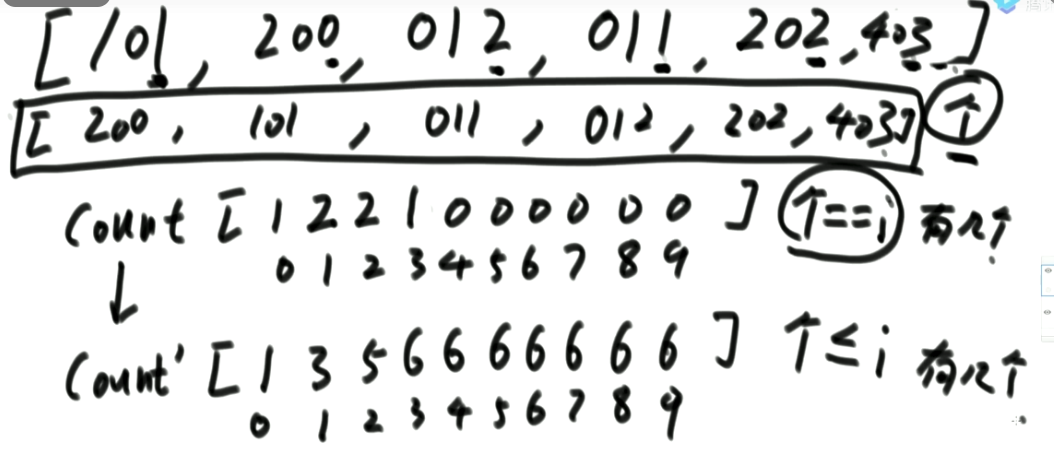 [101, 200, 012, 011, 202, 403]
[200, 101, 011, 012, 202, 403] 个
Count [1 2 2 1 0 0 0 0 0 0] 个==i 有几个
0 1 2 3 4 5 6 7 8 9
↓
Count' [1 3 5 6 6 6 6 6 6 6] 个≤i 有几个
0 1 2 3 4 5 6 7 8 9